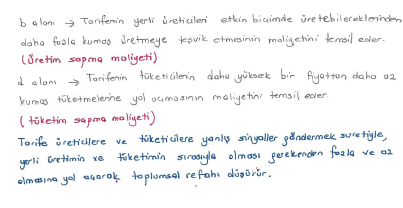 b alanı → Tarifenin yerli üreticileri etkin biçimde üretebileceklerinden
daha fazla kumaş üretmeye teşvik etmesinin maliyetini temsil eder.
(üretim sapma maliyeti)
d alanı → Tarifenin tüketicilerin daha yüksek bir fiyattan daha az
kumaş tüketmelerine yol açmasının maliyetini temsil eder.
(tüketim sapma maliyeti)
Tarife üreticilere ve tüketicilere yanlış sinyaller göndermek suretiyle,
yerli üretimin ve tüketimin sırasıyla olması gerekenden fazla ve az
olmasına yol açarak toplumsal refahı düşürür.